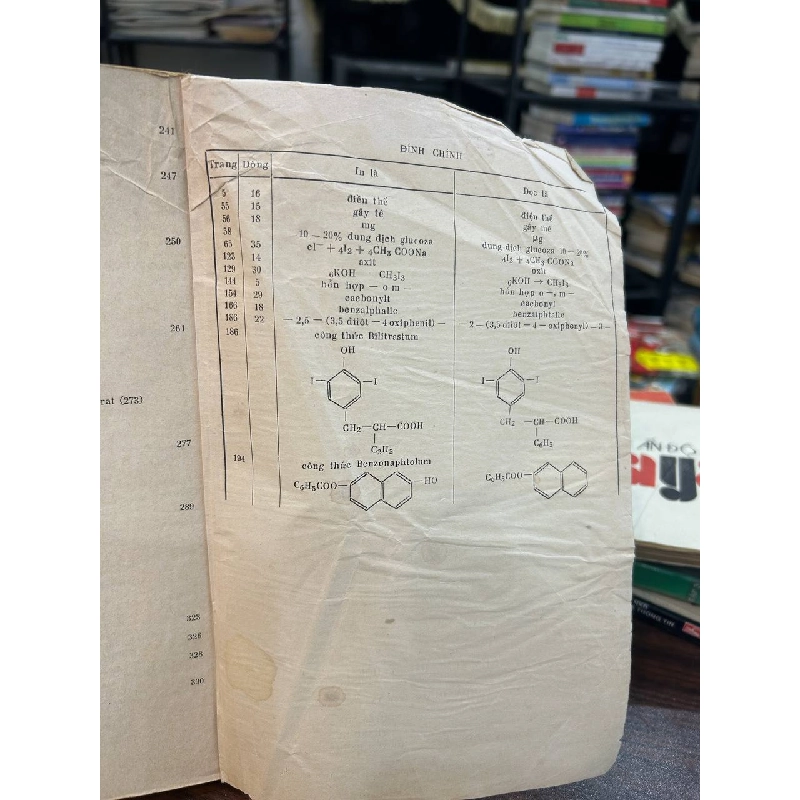 241
247
250
261
rat (273)
277
289
323
326
328
330
ĐÍNH CHÍNH
Trang Dòng In là Đọc là
5 16 điên thế điện thế
55 15 gây tê gây mê
56 18 mg µg
58 10 — 20% dung dịch glucoza dung dịch glucoza 10 — 20%
65 35 cl⁻ + 4I₂ + 4CH₃ COONa 4I₂ + 4CH₃ COONa
123 14 axit oxit
129 30 6KOH CH₃I₃ 6KOH → CH₃I₃
144 5 hỗn hợp — o m — hỗn hợp o — m —
154 29 cacbonyt cacbonyl
166 18 benzalphalic benzalphtalic
186 22 — 2,5 — (3,5 điiôt — 4 oxiphenil) — 2 — (3,5 điiôt — 4 — oxiphenyl) — 3 —
186 công thức Bilitrastum
OH OH
I I I I
CH₂—CH—COOH CH₂—CH—COOH
C₂H₅ C₆H₅
194 công thức Benzonaphtolum
C₆H₅COO— —HO C₆H₅COO—
ẤN ĐỘ